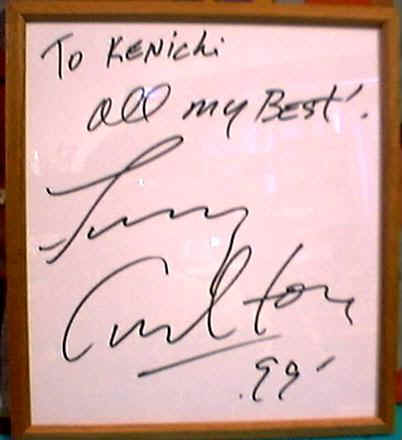 To Kenichi
all my Best!.
Larry
Carlton
.99'